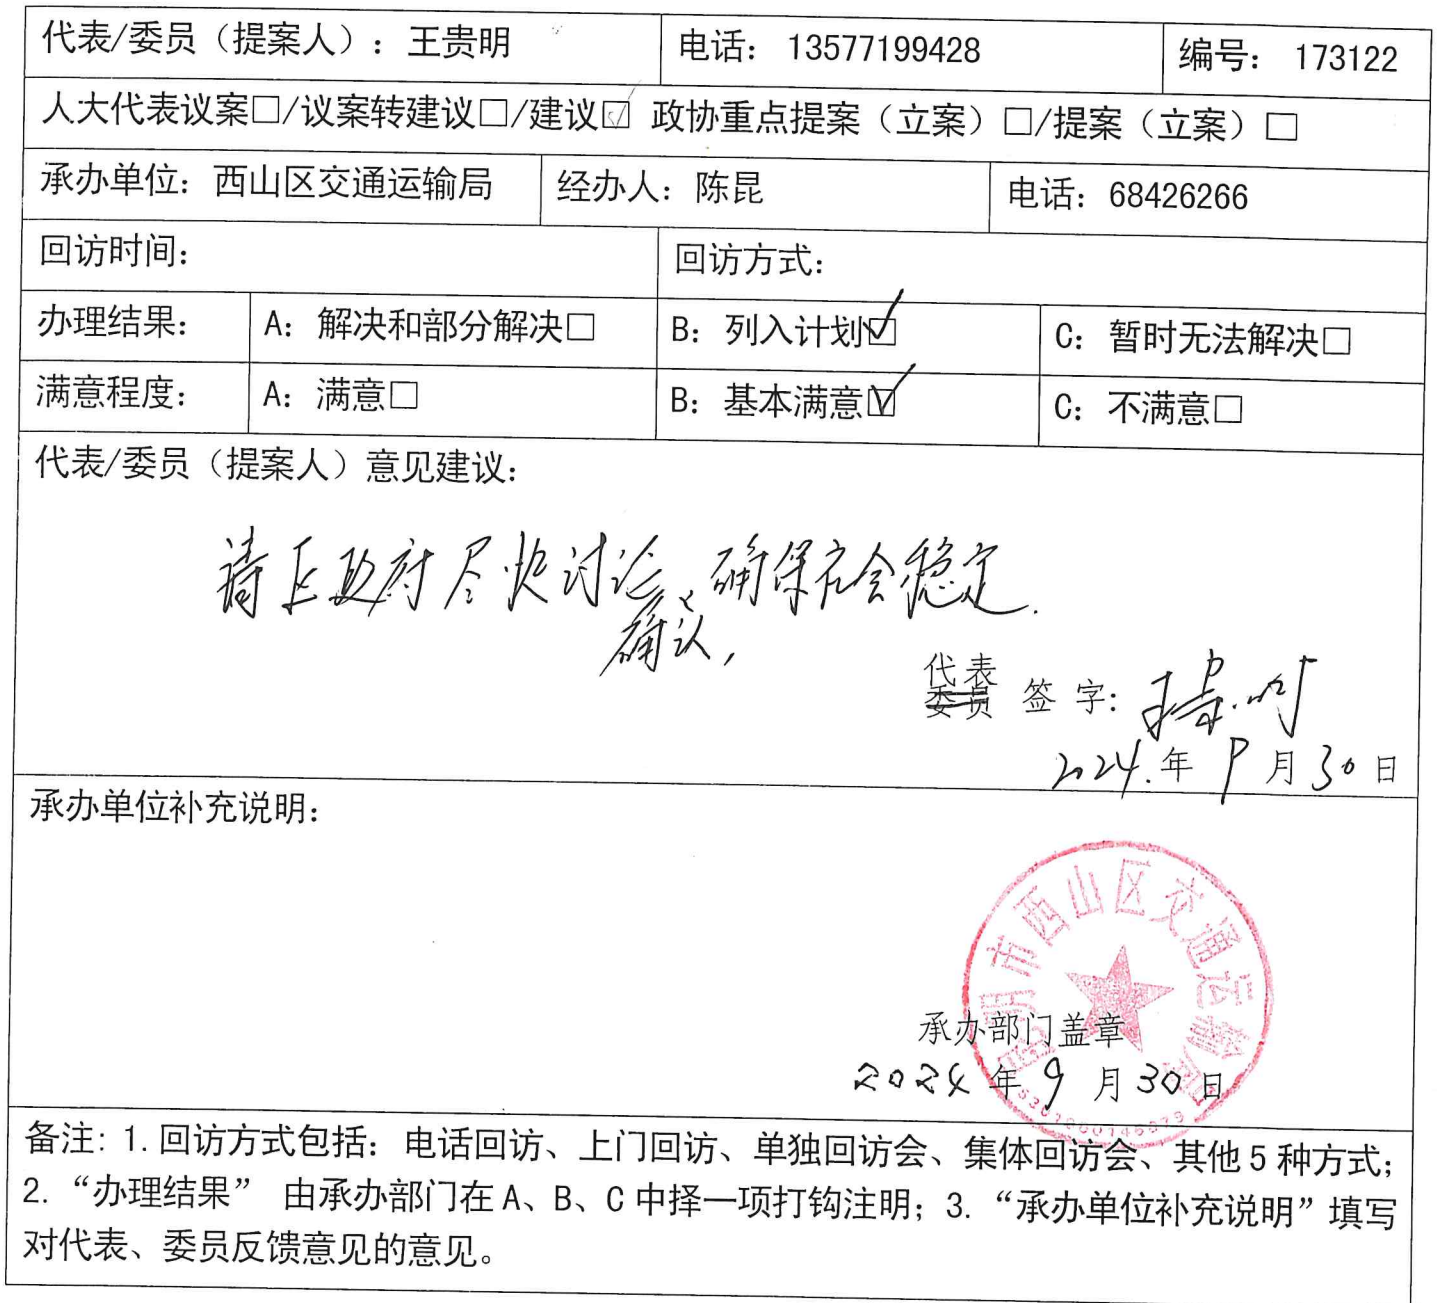 代表/委员（提案人）：王贵明 电话：13577199428 编号：173122
人大代表议案□/议案转建议□/建议☑ 政协重点提案（立案）□/提案（立案）□
承办单位：西山区交通运输局 经办人：陈昆 电话：68426266
回访时间： 回访方式：
办理结果： A：解决和部分解决□ B：列入计划☑ C：暂时无法解决□
满意程度： A：满意□ B：基本满意☑ C：不满意□
代表/委员（提案人）意见建议：
请区政府尽快讨论、确保社会稳定.
确认,
代表
委员 签字：王贵明
2024.年9月30日
承办单位补充说明：
昆明市西山区交通运输局
承办部门盖章
2024年9月30日
备注：1.回访方式包括：电话回访、上门回访、单独回访会、集体回访会、其他5种方式；
2.“办理结果” 由承办部门在A、B、C中择一项打钩注明；3.“承办单位补充说明”填写
对代表、委员反馈意见的意见。